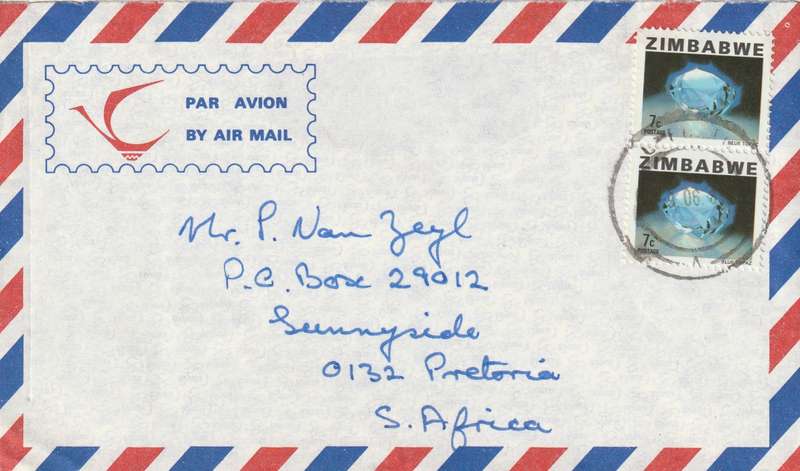 PAR AVION
BY AIR MAIL
ZIMBABWE
7c
POSTAGE
BLUE TOPAZ
ZIMBABWE
7c
POSTAGE
BLUE TOPAZ
06
Mr. P. Van Zeyl
P.O. Box 29012
Sunnyside
0132 Pretoria
S. Africa